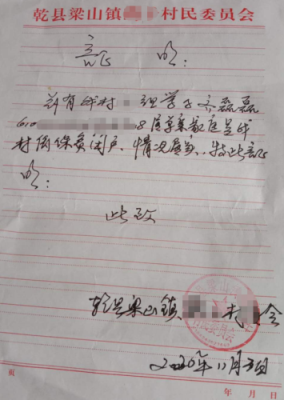 乾县梁山镇 村民委员会
证明:
兹有我村 组学子齐磊磊
610 8属单亲家庭是我
村 保贫困户、情况属实、特此证
明:
此致
乾县梁山镇 村 会
2020年11月 日
页 年 月 日